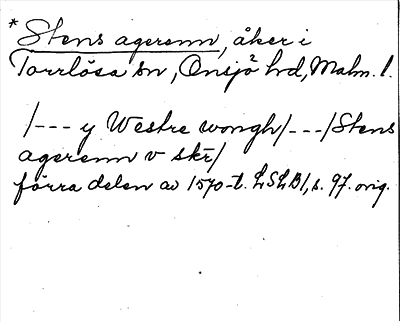 * Stens agerenn, åker i
Torrlösa sn, Onsjö hd, Malm. l.
/--- y Westre wongh/---/Stens
agerenn v skr/
förra delen av 1570-t. LSLB1, s. 97. orig.